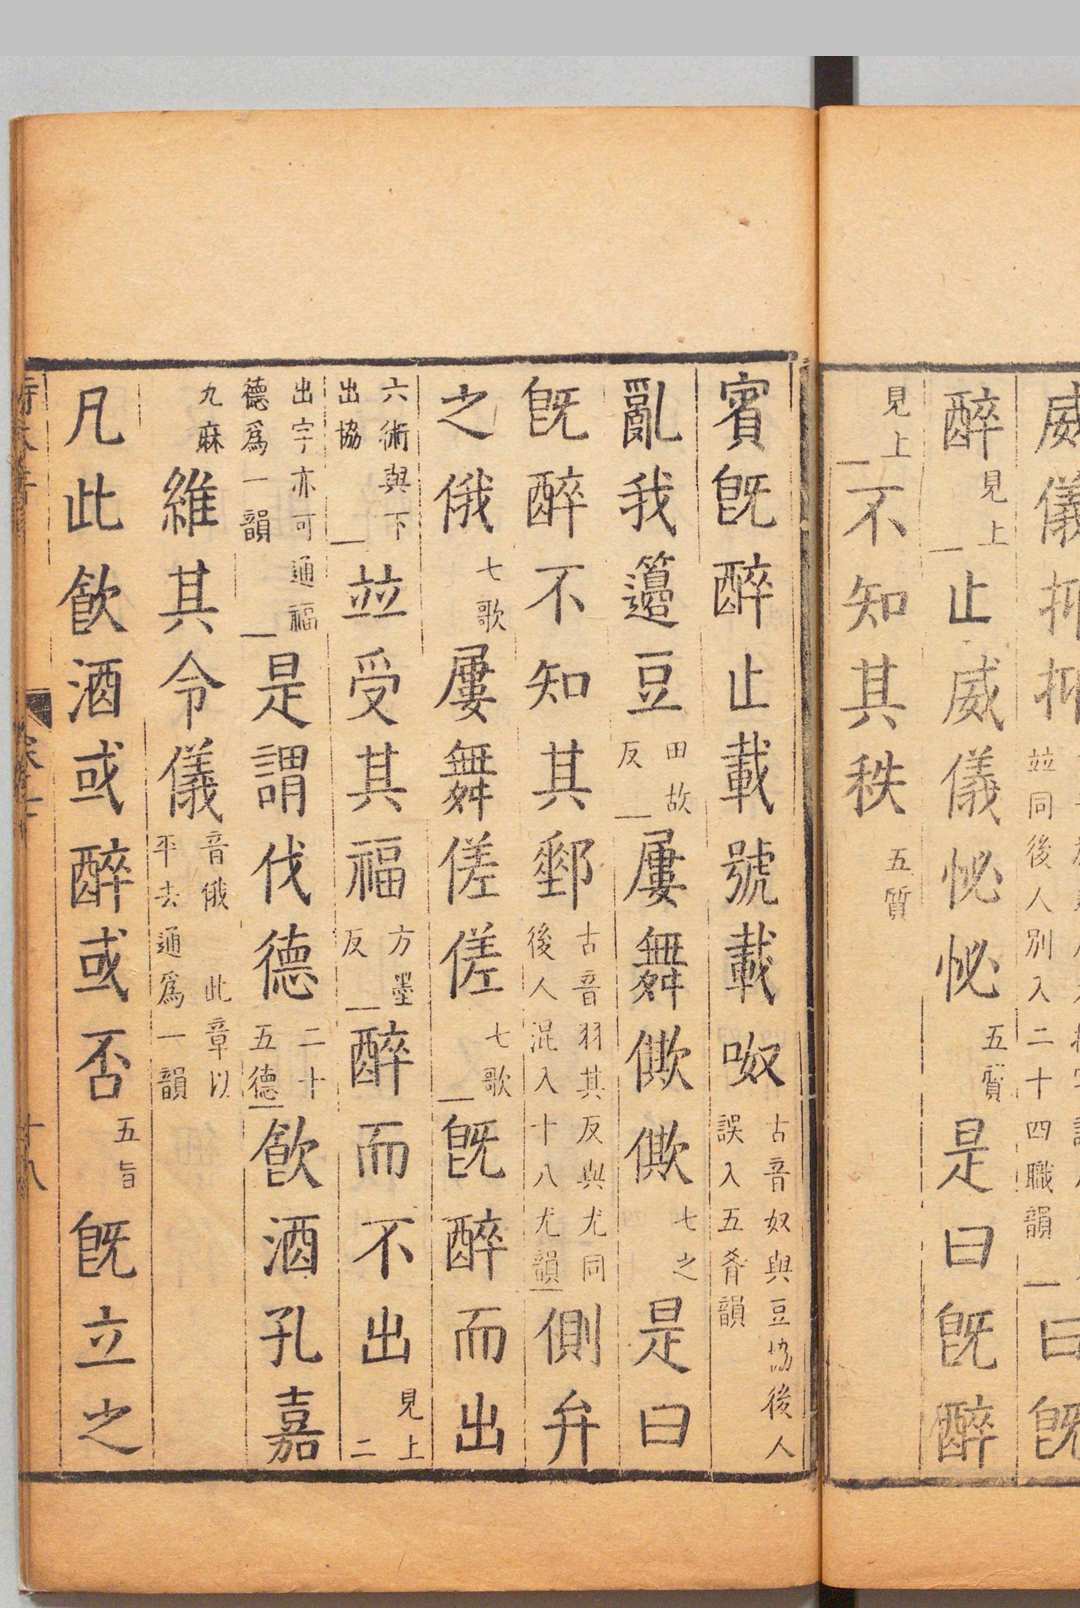 威儀抑抑並同後人別入二十四職韻曰旣
醉見上止威儀怭怭五質是曰旣醉
見上不知其秩五質
賓旣醉止載號載呶古音奴與豆協後人誤入五肴韻
亂我籩豆田故反屢舞僛僛七之是曰
旣醉不知其郵古音羽其反與尤同後人混入十八尤韻側弁
之俄七歌屢舞傞傞七歌旣醉而出
六術與下出協並受其福方墨反醉而不出見上二
出字亦可通福德爲一韻是謂伐德二十五德飮酒孔嘉
九麻維其令儀音俄 此章以平去通爲一韻
凡此飮酒或醉或否五旨旣立之
十八